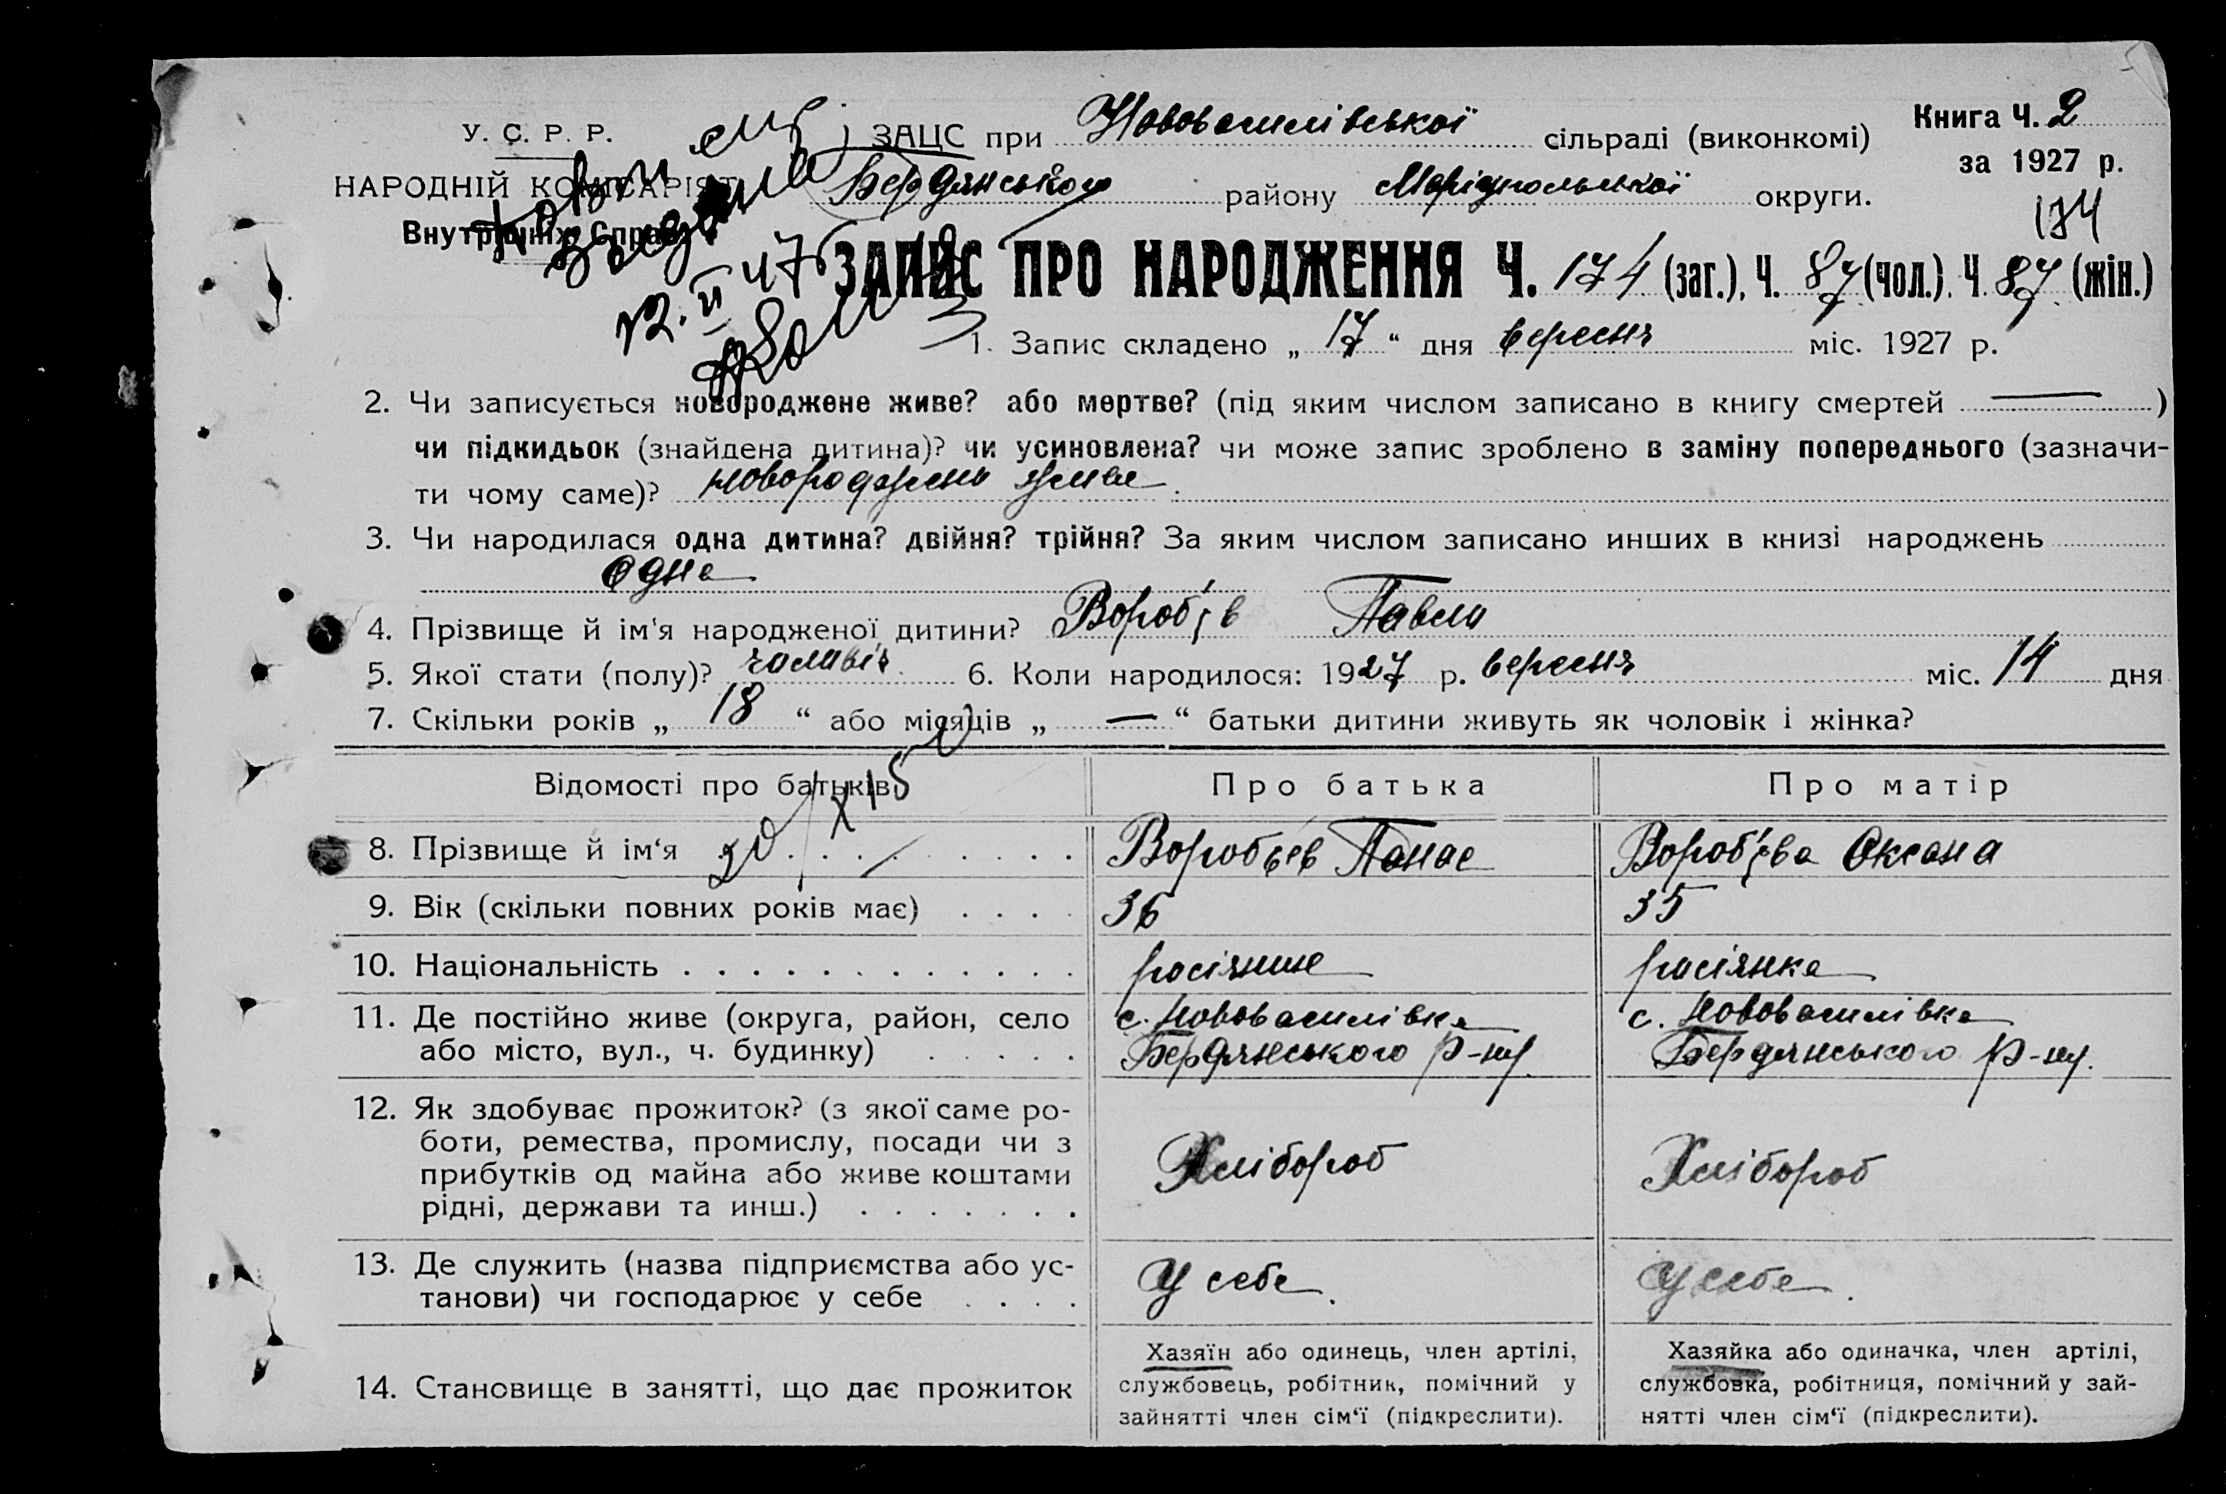 У. С. Р. Р.
НАРОДНІЙ КОМІСАРІЯТ
Внутрішніх Справ
ЗАЦС при Нововасилівської сільраді (виконкомі)
Бердянського району Маріупольської округи.
Книга Ч. 2
за 1927 р.
174
12. VI 47
ЗАПИС ПРО НАРОДЖЕННЯ Ч. 174 (заг.), Ч. 87 (чол.). Ч. 87 (жін.)
1. Запис складено „ 17 “ дня вересня міс. 1927 р.
2. Чи записується новороджене живе? або мертве? (під яким числом записано в книгу смертей — )
чи підкидьок (знайдена дитина)? чи усиновлена? чи може запис зроблено в заміну попереднього (зазначи-
ти чому саме)? новороджене живе.
3. Чи народилася одна дитина? двійня? трійня? За яким числом записано инших в книзі народжень
одна
4. Прізвище й ім'я народженої дитини? Вороб'їв Павло
5. Якої стати (полу)? чоловіч. 6. Коли народилося: 1927 р. вересня міс. 14 дня
7. Скільки років „ 18 “ або місяців „ — “ батьки дитини живуть як чоловік і жінка?
Відомості про батьків Про батька Про матір
8. Прізвище й ім‘я Воробьев Панас Вороб'єва Оксана
9. Вік (скільки повних років має) 36 35
10. Національність росіянин росіянка
11. Де постійно живе (округа, район, село с. Нововасилівка с. Нововасилівка
або місто, вул., ч. будинку) Бердянського р-ну. Бердянського р-ну.
12. Як здобуває прожиток? (з якої саме ро-
боти, ремества, промислу, посади чи з Хлібороб Хлібороб
прибутків од майна або живе коштами
рідні, держави та инш.)
13. Де служить (назва підприємства або ус- У себе. У себе.
танови) чи господарює у себе
14. Становище в занятті, що дає прожиток
Хазяїн або одинець, член артілі,
службовець, робітник, помічний у
зайнятті член сім‘ї (підкреслити).
Хазяйка або одиначка, член артілі,
службовка, робітниця, помічний у зай-
нятті член сім‘ї (підкреслити).